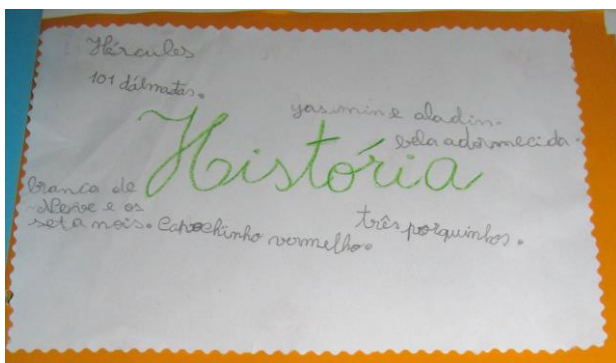 Hércules
101 dálmatas.
yasmin e aladin.
bela adormecida.
História
branca de
Neve e os
set a nois. Capochinho vermelho.
três porquinhos.